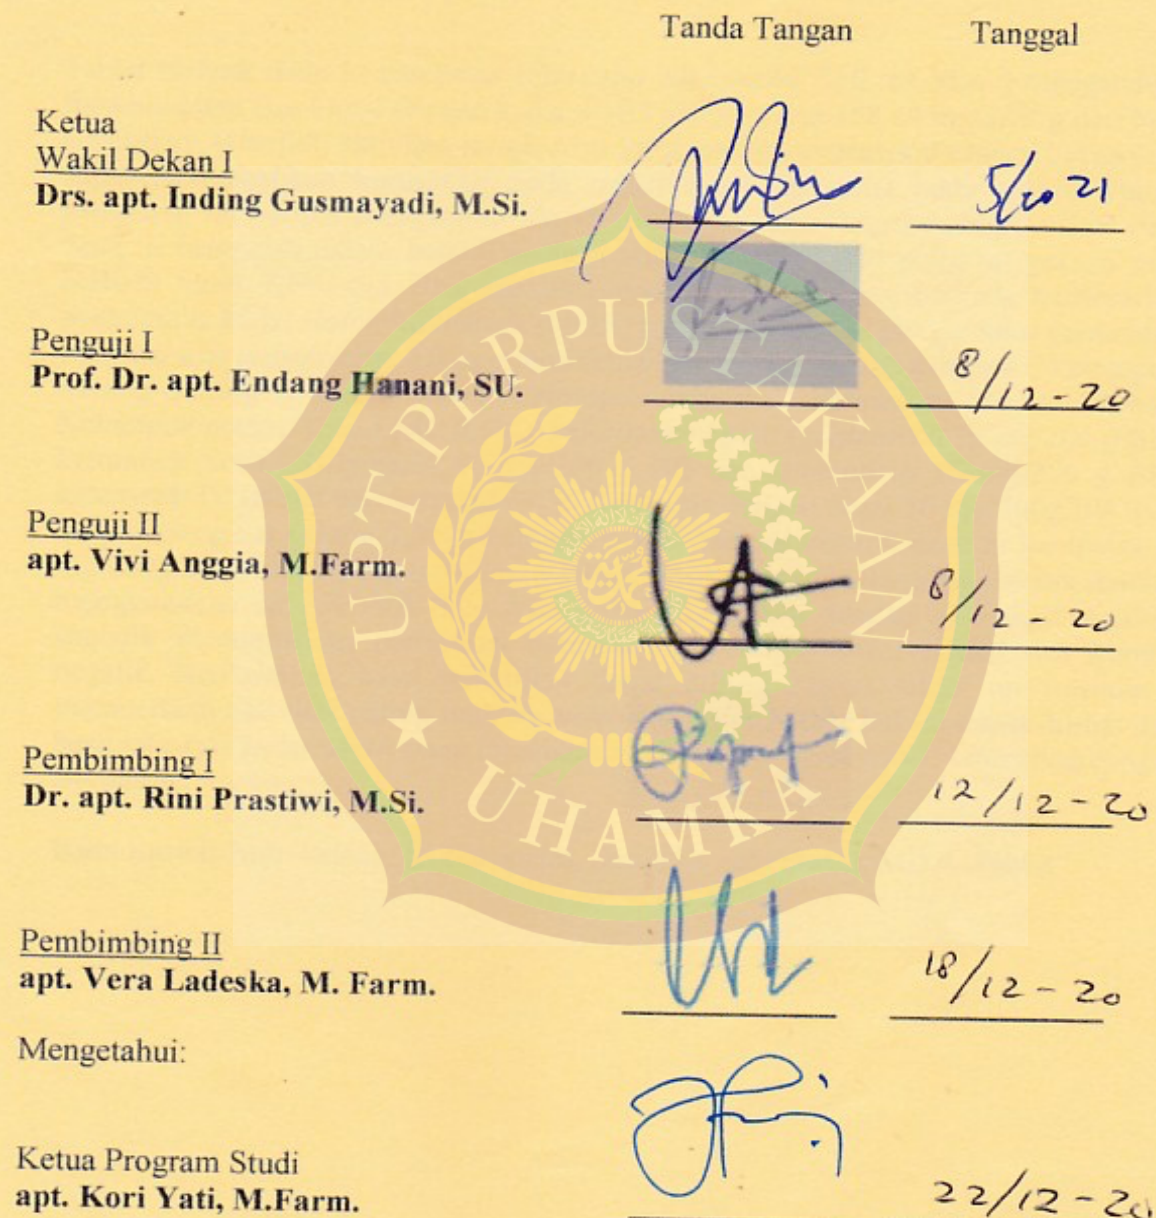 Tanda Tangan Tanggal
Ketua
Wakil Dekan I
Drs. apt. Inding Gusmayadi, M.Si. 5/10 21
Penguji I
Prof. Dr. apt. Endang Hanani, SU. 8/12-20
Penguji II
apt. Vivi Anggia, M.Farm. 8/12 - 20
Pembimbing I
Dr. apt. Rini Prastiwi, M.Si. 12/12-20
Pembimbing II
apt. Vera Ladeska, M. Farm. 18/12 - 20
Mengetahui:
Ketua Program Studi
apt. Kori Yati, M.Farm. 22/12-20
UPT PERPUSTAKAAN
UHAMKA